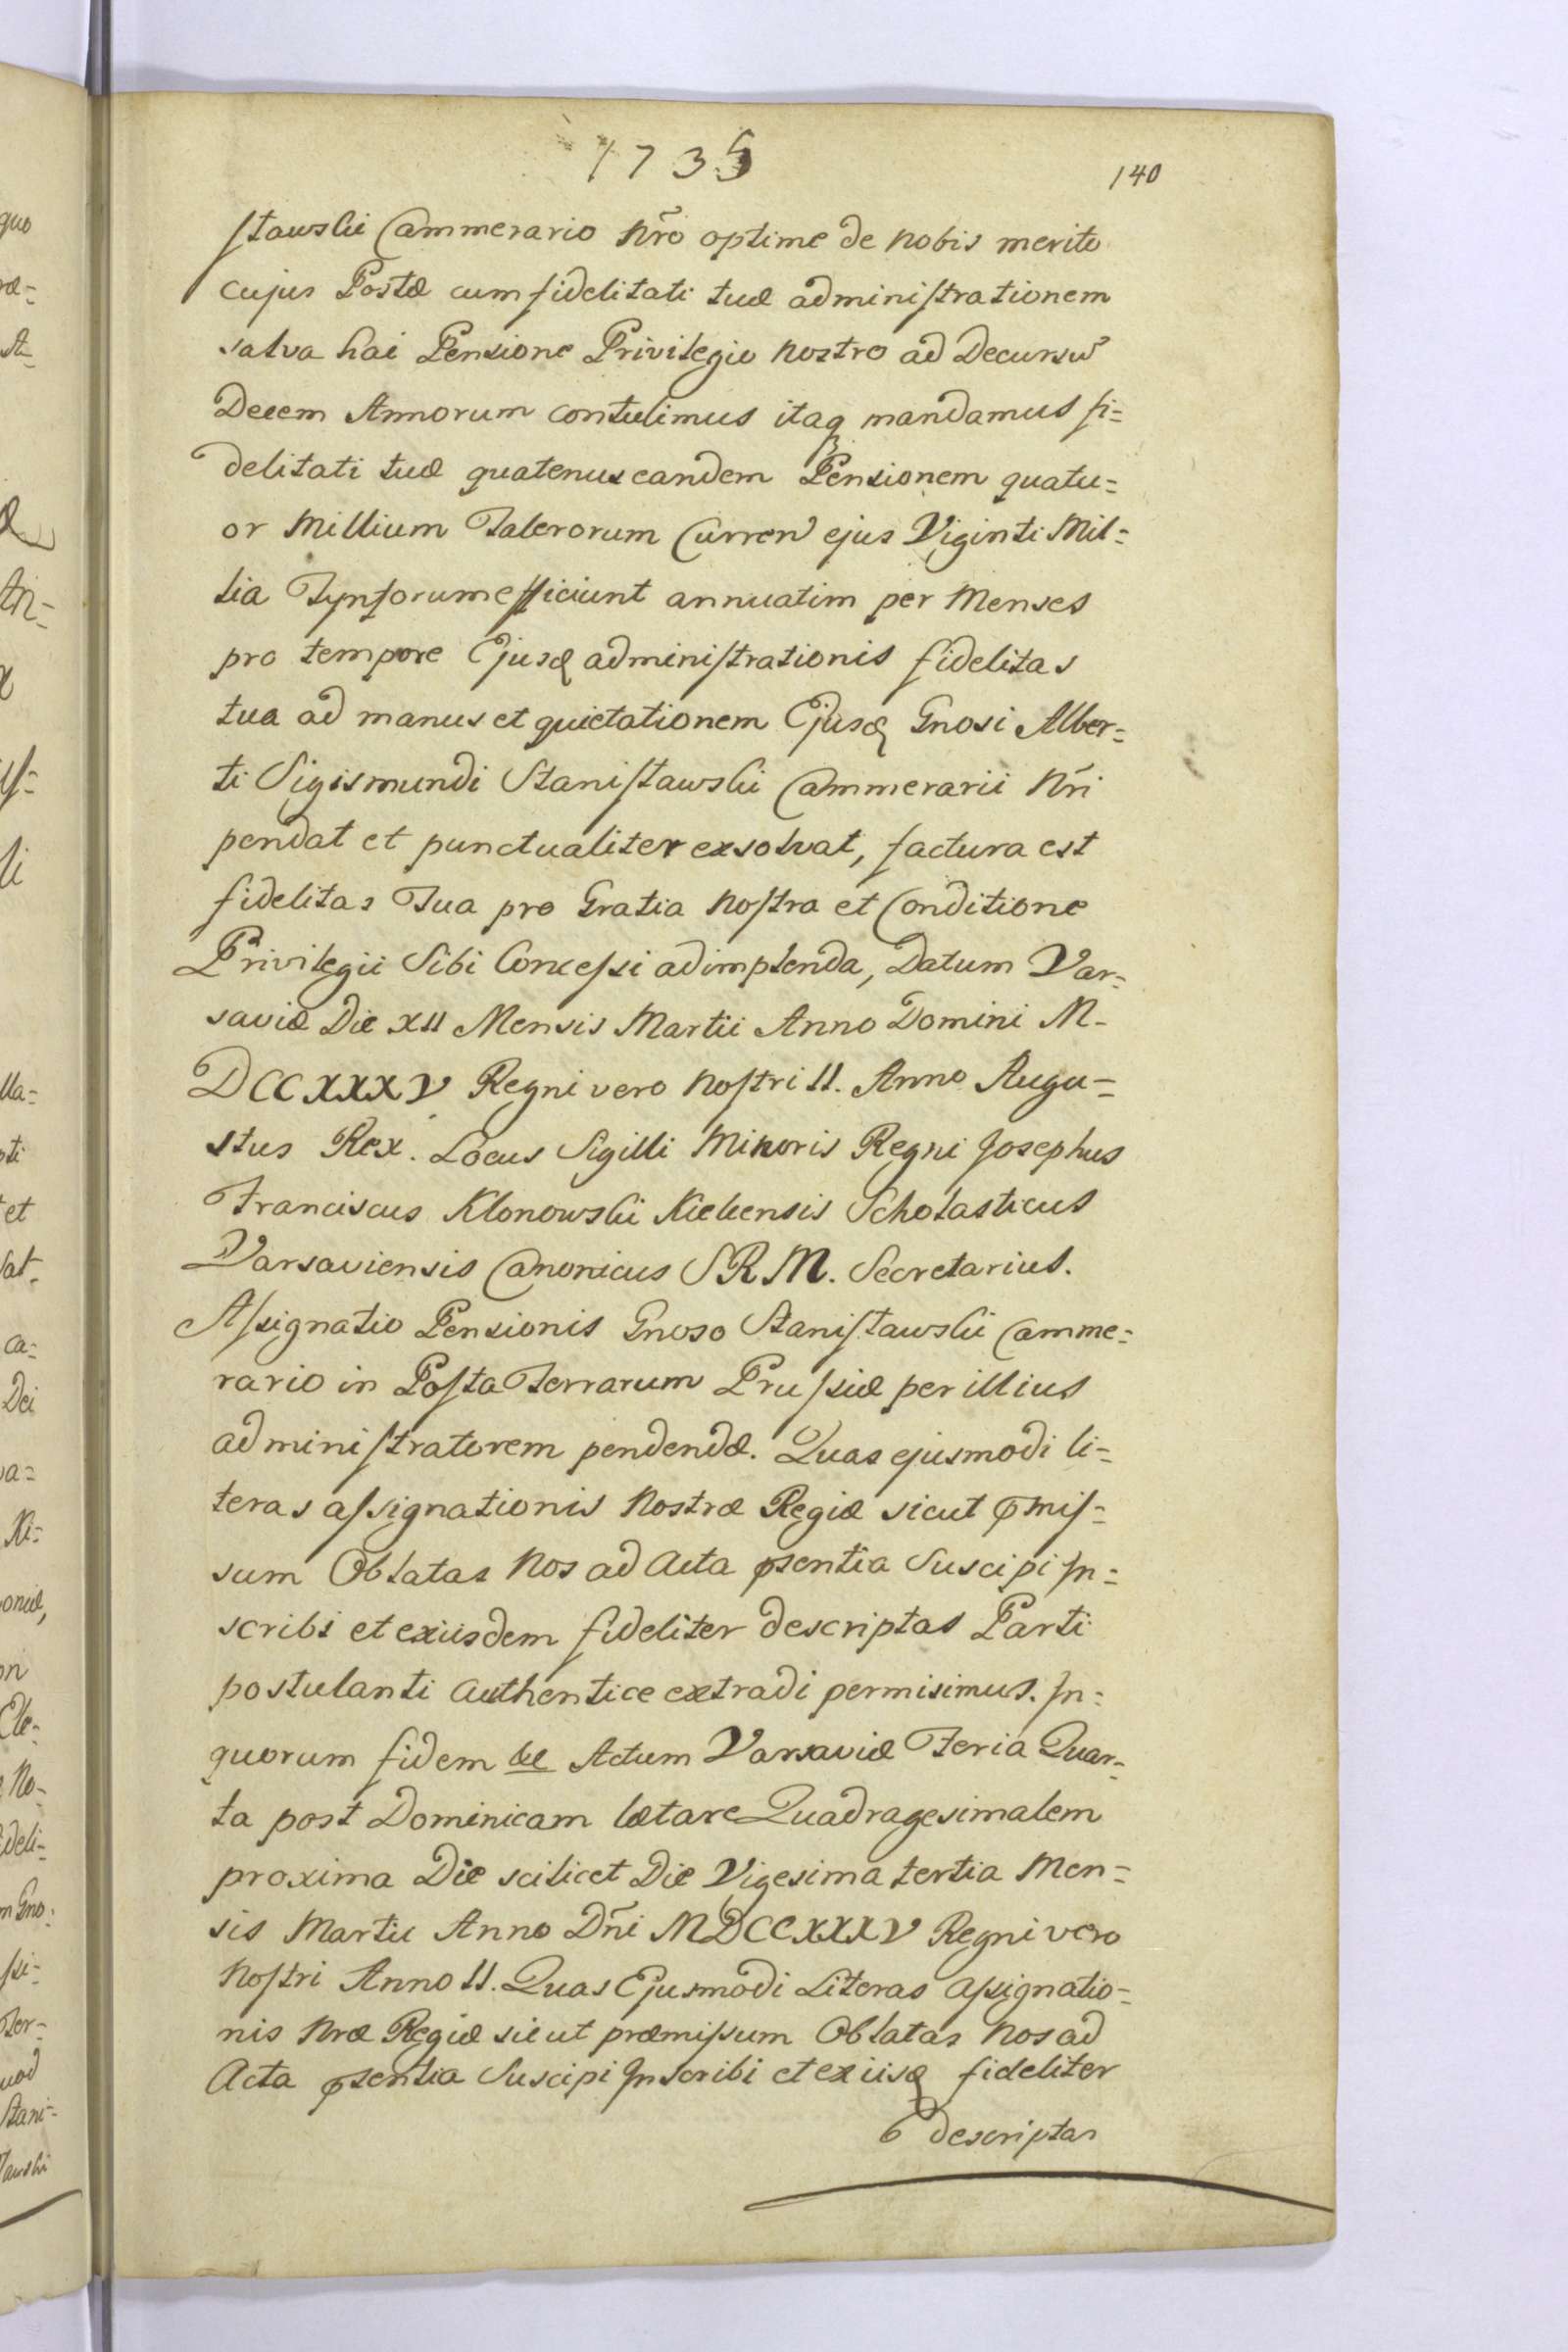 1735
140
stawski Cammerario Nrõ optime de nobis merito
cujus Postæ cum fidelitati tuæ administrationem
salva hai Pensione Privilegio nostro ad Decursũ
Decem Annorum contulimus itaq mandamus fi=
delitati tuæ quatenus eandem Pensionem quatu=
or Millium Talerorum Curren ejus Viginti Mil=
lia Tynforum efficiunt annuatim per Menses
pro tempore Ejusd administrationis fidelitas
tua ad manus et quietationem Ejusd Gnosi Alber=
ti Sigismundi Stanisławski Cammerarii Nrĩ
pendat et punctualiter exsolvat, factura est
fidelitas Tua pro Gratia Nostra et Conditione
Privilegii Sibi Concessi adimplenda, Datum Var=
saviæ Die XII Mensis Martii Anno Domini M-
DCCXXXV Regni vero Nostri II. Anno Augu=
stus Rex. Locus Sigilli Minoris Regni Josephus
Franciscus Klonowski Kielcensis Scholasticus
Varsaviensis Canonicus SRM. Secretarius.
Assignatio Pensionis Gnoso Stanisławski Camme=
rario in Posta Terrarum Prussiæ per illius
administratorem pendendæ. Quas ejusmodi li=
teras assignationis Nostræ Regiæ sicut pmis=
sum Oblatas Nos ad Acta psentia Suscipi In=
scribi et exiisdem fideliter descriptas Parti
postulanti authentice extradi permisimus. In=
quorum fidem &c Actum Varsaviæ Feria Quar=
ta post Dominicam lætare Quadragesimalem
proxima Die scilicet Die Vigesima tertia Men=
sis Martii Anno Dñi MDCCXXXV Regni vero
Nostri Anno II. Quas Ejusmodi Literas assignatio=
nis Nræ Regiæ sicut præmissum Oblatas Nos ad
Acta psentia Suscipi Inscribi et exiisd fideliter
descriptas